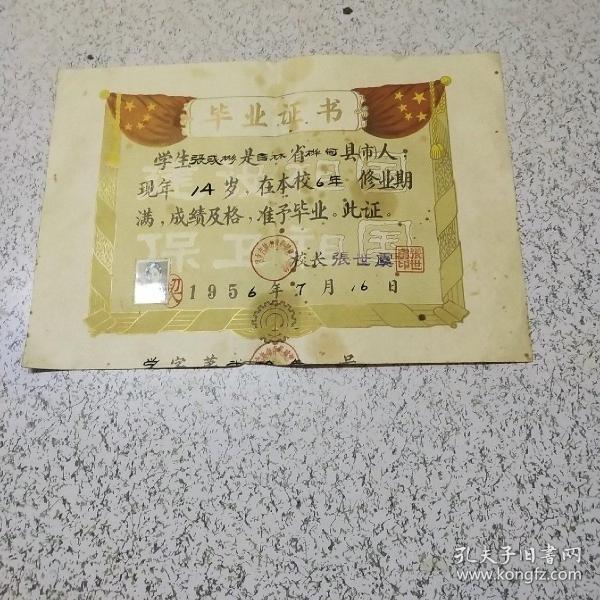 毕业证书
学生张成彬是吉林省桦甸县市人,
现年14岁,在本校6年修业期
满,成绩及格,准予毕业。此证。
保卫祖国
校长 張世虞
1956年7月16日
孔夫子旧书网
www.kongfz.com